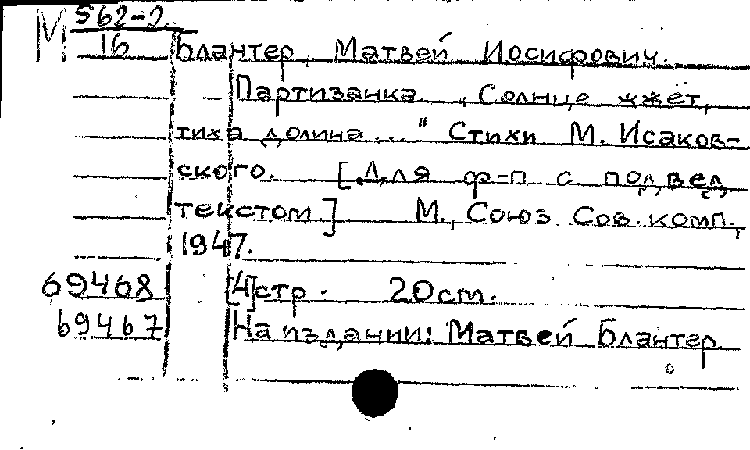 М 562-2
16
Блантер, Матвей Иосифович.
Партизанка. "Солнце жжет,
тиха долина..." Стихи М. Исаков-
ского. [Для ф-п с подвед.
текстом] М., Союз Сов. комп.,
1947.
69468 [4]стр. 20cm.
69467 На издании: Матвей Блантер